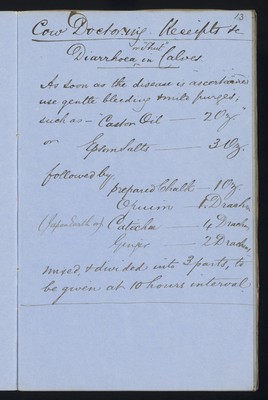 13
Cow Doctoring Receipts &c
Diarrhoea in Calves
As soon as the disease is ascertained
use gentle bleeding & mild purges,
such as - "Castor Oil — 2 Oz"
or Epsom Salts — 3 Oz.
followed by
prepared Chalk — 1 Oz
Opium — 1 Drachm
(Japan Earth or) Catechu — 4 Drachm
Ginger — 2 Drachm
mixed, & divided into 3 parts, to
be given at 10 hours interval